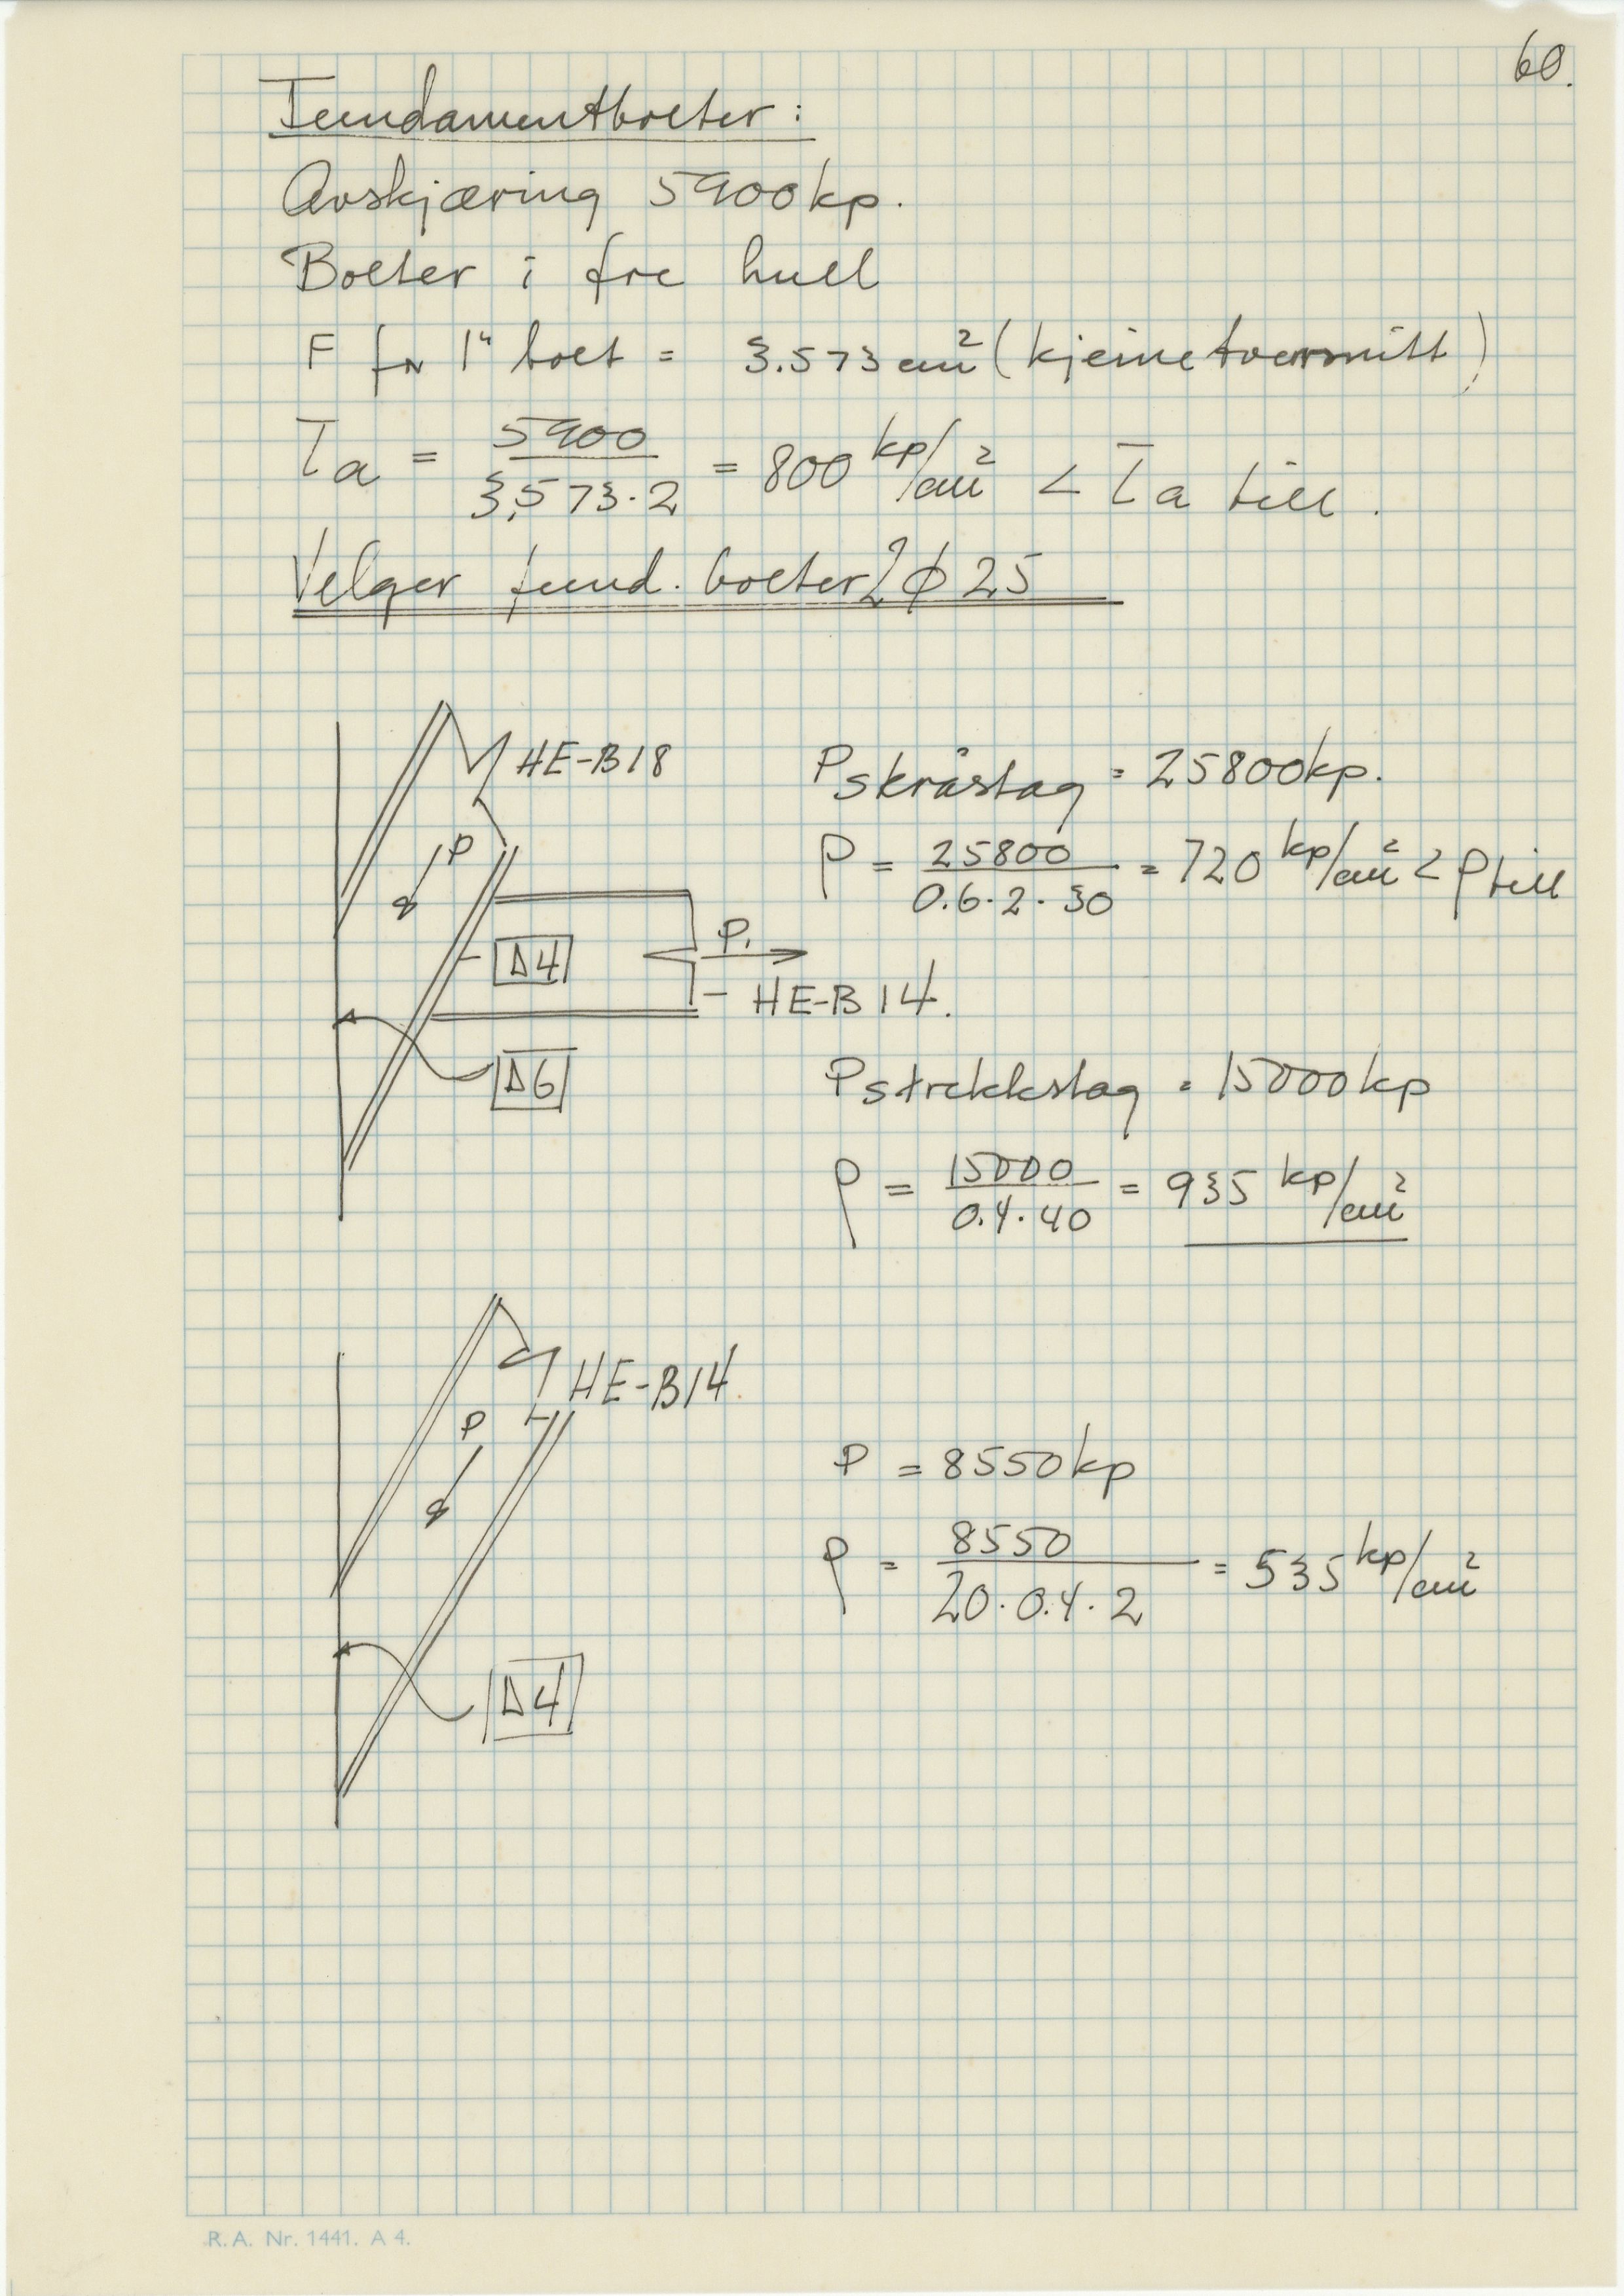 60.
Fundamentbolter:
Avskjæring 5900 kp.
Bolter i fre hull
F for 1" bolt = 3.573 cm² (kjernetverrsnitt)
τa = 5900 / 3,573·2 = 800 kp/cm² < τa till.
Velger fund. bolter 2ϕ25
HE-B18
P skråstag = 25800kp.
P
ρ = 25800 / 0.6·2·30 = 720 kp/cm² < ρ till
P₁
Δ4
HE-B14.
Δ6
P strekkstag = 15000kp
ρ = 15000 / 0.4·40 = 935 kp/cm²
HE-B14.
P
P = 8550kp
ρ = 8550 / 20·0.4·2 = 535 kp/cm²
Δ4
R.A. Nr. 1441. A 4.